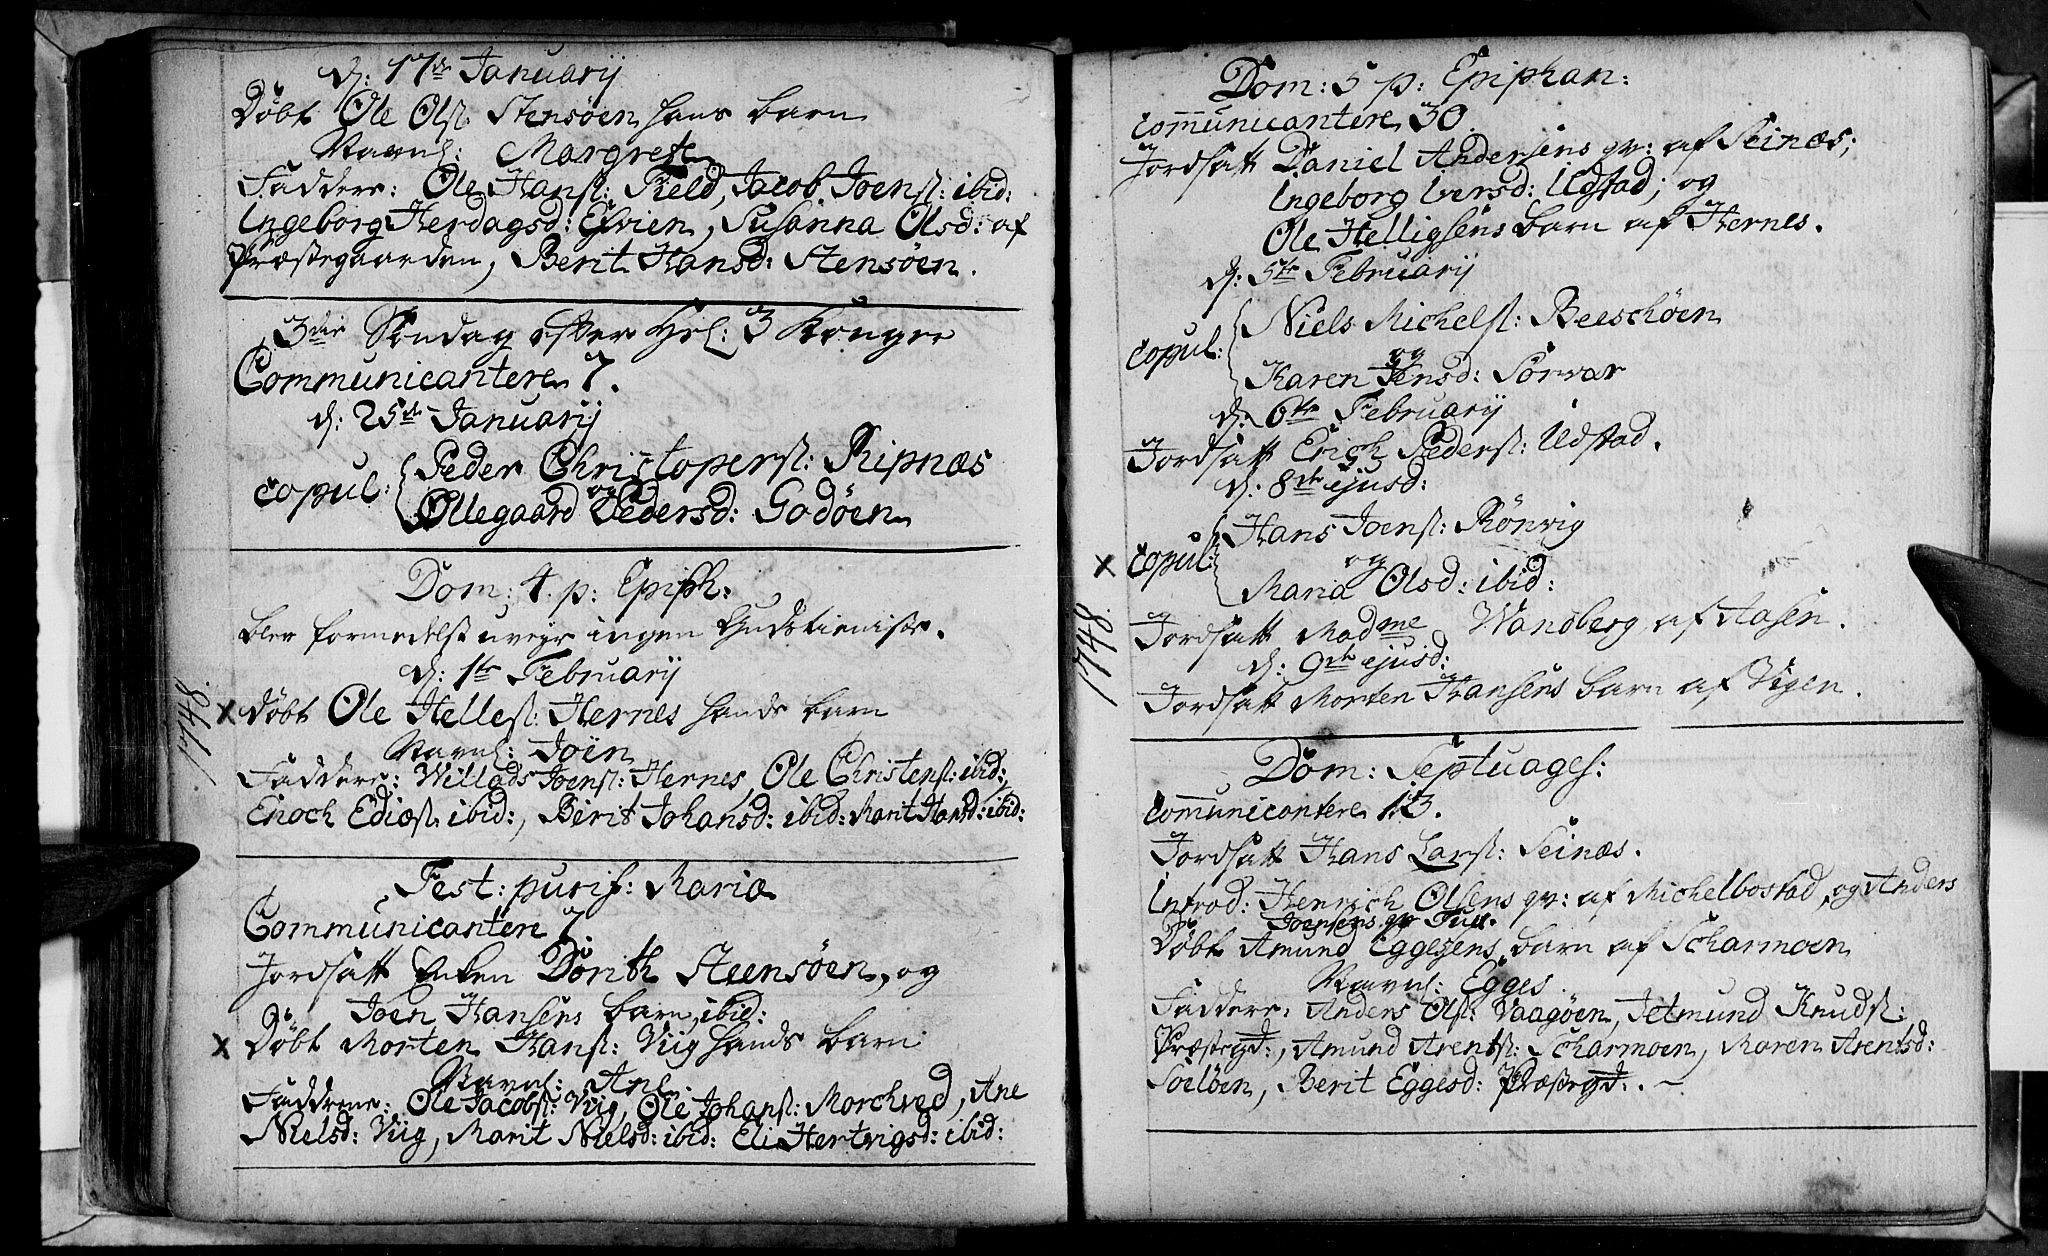 d: 17de Januarij
Døbt Ole Ols: Stensøen hans barn
Navnl: Margrete
Faddere: Ole Hans: Field, Jacob Joens: ibid:
Ingeborg Herdagsd: Elvien, Susanna Olsd: af
Præstegaarden, Berit Hansd: Stensøen.
3die Søndag efter Hel: 3 Konger
Communicantere 7.
d: 25de Januarij
copul: Peder Christopers: Ripnæs
og
Ollegaard Pedersd: Godøen
Dom: 4. p: Epiph:
blev formedelst uveyr ingen Gudstieniste.
d: 1te Februarij
1748.
x Døbt Ole Helles: Hernes hands barn
Navnl: Joen
Faddere: Willads Joens: Hernes, Ole Christens: ibid:,
Enoch Edies: ibid:, Berit Johansd: ibid: Marit Hansd: ibid:
Fest: purif: Mariæ
Communicantere 7
Jordsatt Enken Dorith Steensøen, og
Joen Hansens barn, ibid:
x Døbt Morten Hans: Viig hands barn
Navnl: Ane.
Faddere: Ole Jacobs: Viig, Ole Johans: Morchved, Ane
Nielsd: Viig, Marit Nielsd: ibid: Eli Hertvigsd: ibid:
Dom: 5 p: Epiphan:
communicantere 30.
Jordsatt Daniel Andersens qv: af Seinæs;
Ingeborg Iversd: Udstad; og
Ole Helligsens barn af Hernes.
d: 5te Februarij
copul: Niels Michels: Beeschøen
og
Karen Jensd: Sørvar
d: 6te Februarij
Jordsatt Erich Peders: Udstad.
d: 8de ejusd:
x copul: Hans Joens: Rønvig
og
Maria Olsd: ibid:
1748.
Jordsatt Madme Wandberg af Aasen.
d: 9de ejusd:
Jordsatt Morten Hansens barn af Vigen.
Dom: Septuages:
communicantere 13.
Jordsatt Hans Lars: Seinæs.
Introd: Henrich Olsens qv: af Michelbostad, og Anders
Joensens qv
Døbt Amund Eggesens barn af Scharmoen
Navnl: Egges.
Faddere: Anders Ols: Vaagøen, Jetmund Knuds:
Præstegd:, Amund Arents: Scharmoen, Maren Arentsd:
Soeløen, Berit Eggesd: Præstegd:. –